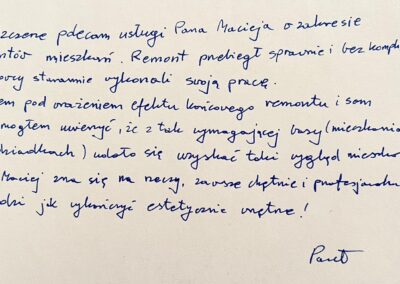 szczerze polecam usługi Pana Macieja w zakresie
ntów mieszkań. Remont przebiegł sprawnie i bez kompli
wcy starannie wykonali swoją pracę.
em pod wrażeniem efektu końcowego remontu i sam
mogłem uwierzyć, że z tak wymagającej bazy (mieszkanie
dziadkach) udało się uzyskać taki wygląd mieszka
Maciej zna się na rzeczy, zawsze chętnie i profesjonaln
dzi jak wykończyć estetycznie wnętrze!
Paweł